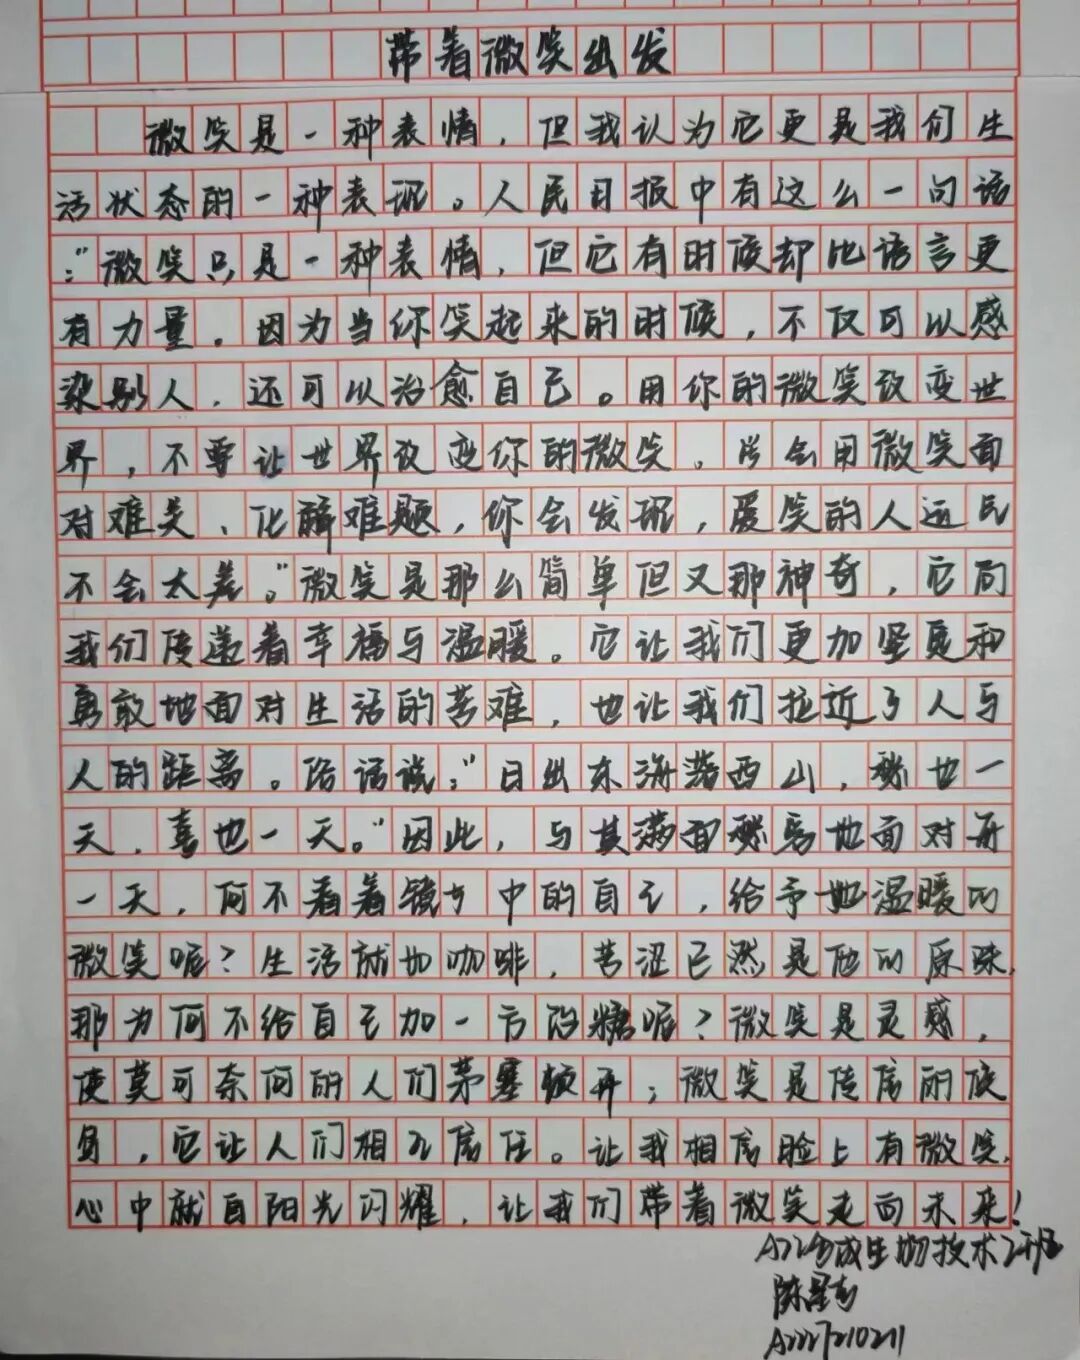 带着微笑出发
微笑是一种表情，但我认为它更是我们生
活状态的一种表现。人民日报中有这么一句话
：“微笑只是一种表情，但它有时候却比语言更
有力量。因为当你笑起来的时候，不仅可以感
染别人，还可以治愈自己。用你的微笑改变世
界，不要让世界改变你的微笑。学会用微笑面
对难关、化解难题，你会发现，爱笑的人运气
不会太差。”微笑是那么简单但又那神奇，它向
我们传递着幸福与温暖。它让我们更加坚定和
勇敢地面对生活的苦难，也让我们拉近了人与
人的距离。俗话说：“日出东海落西山，愁也一
天，喜也一天。”因此，与其满面愁容地面对每
一天，何不看着镜子中的自己，给予她温暖的
微笑呢？生活就如咖啡，苦涩已然是他的原味，
那为何不给自己加一方的糖呢？微笑是灵感，
使莫可奈何的人们茅塞顿开；微笑是传信的使
员，它让人们相互信任。让我相信脸上有微笑，
心中就自阳光闪耀，让我们带着微笑走向未来！
A22合成生物技术2班
A2227210211